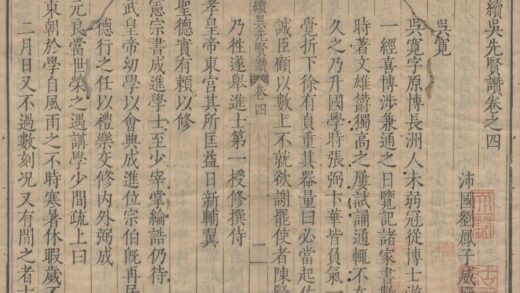 續吳先賢讚卷之四
沛國劉鳳子威
吳寬
吳寬字原博長洲人未弱冠從博士遊
一經喜博涉兼通之日覽記諸家書數
時著文雄贍獨高之屢試誦通輒不在
久之乃升國學時張弼卞華皆負氣一
覺折下徐有貞重其器量曰必當起
誠臣顧以數上不就欲謝罷使者陳賢
續吳先賢讚 卷四
二
乃徃遂舉進士第一授修撰侍
孝皇帝東宮其所匡益日新輔翼
聖德實有賴以修
憲宗書成進學士至少宰掌綸誥仍待
武皇帝幼學以會典成進位宗伯既再居
德行之任以禮樂交修内外弼成
元良當世榮之遇講學少間䟽上曰
東朝於學自風雨之不時寒暑休暇歲不
二月日又不過數刻况又有間之者古